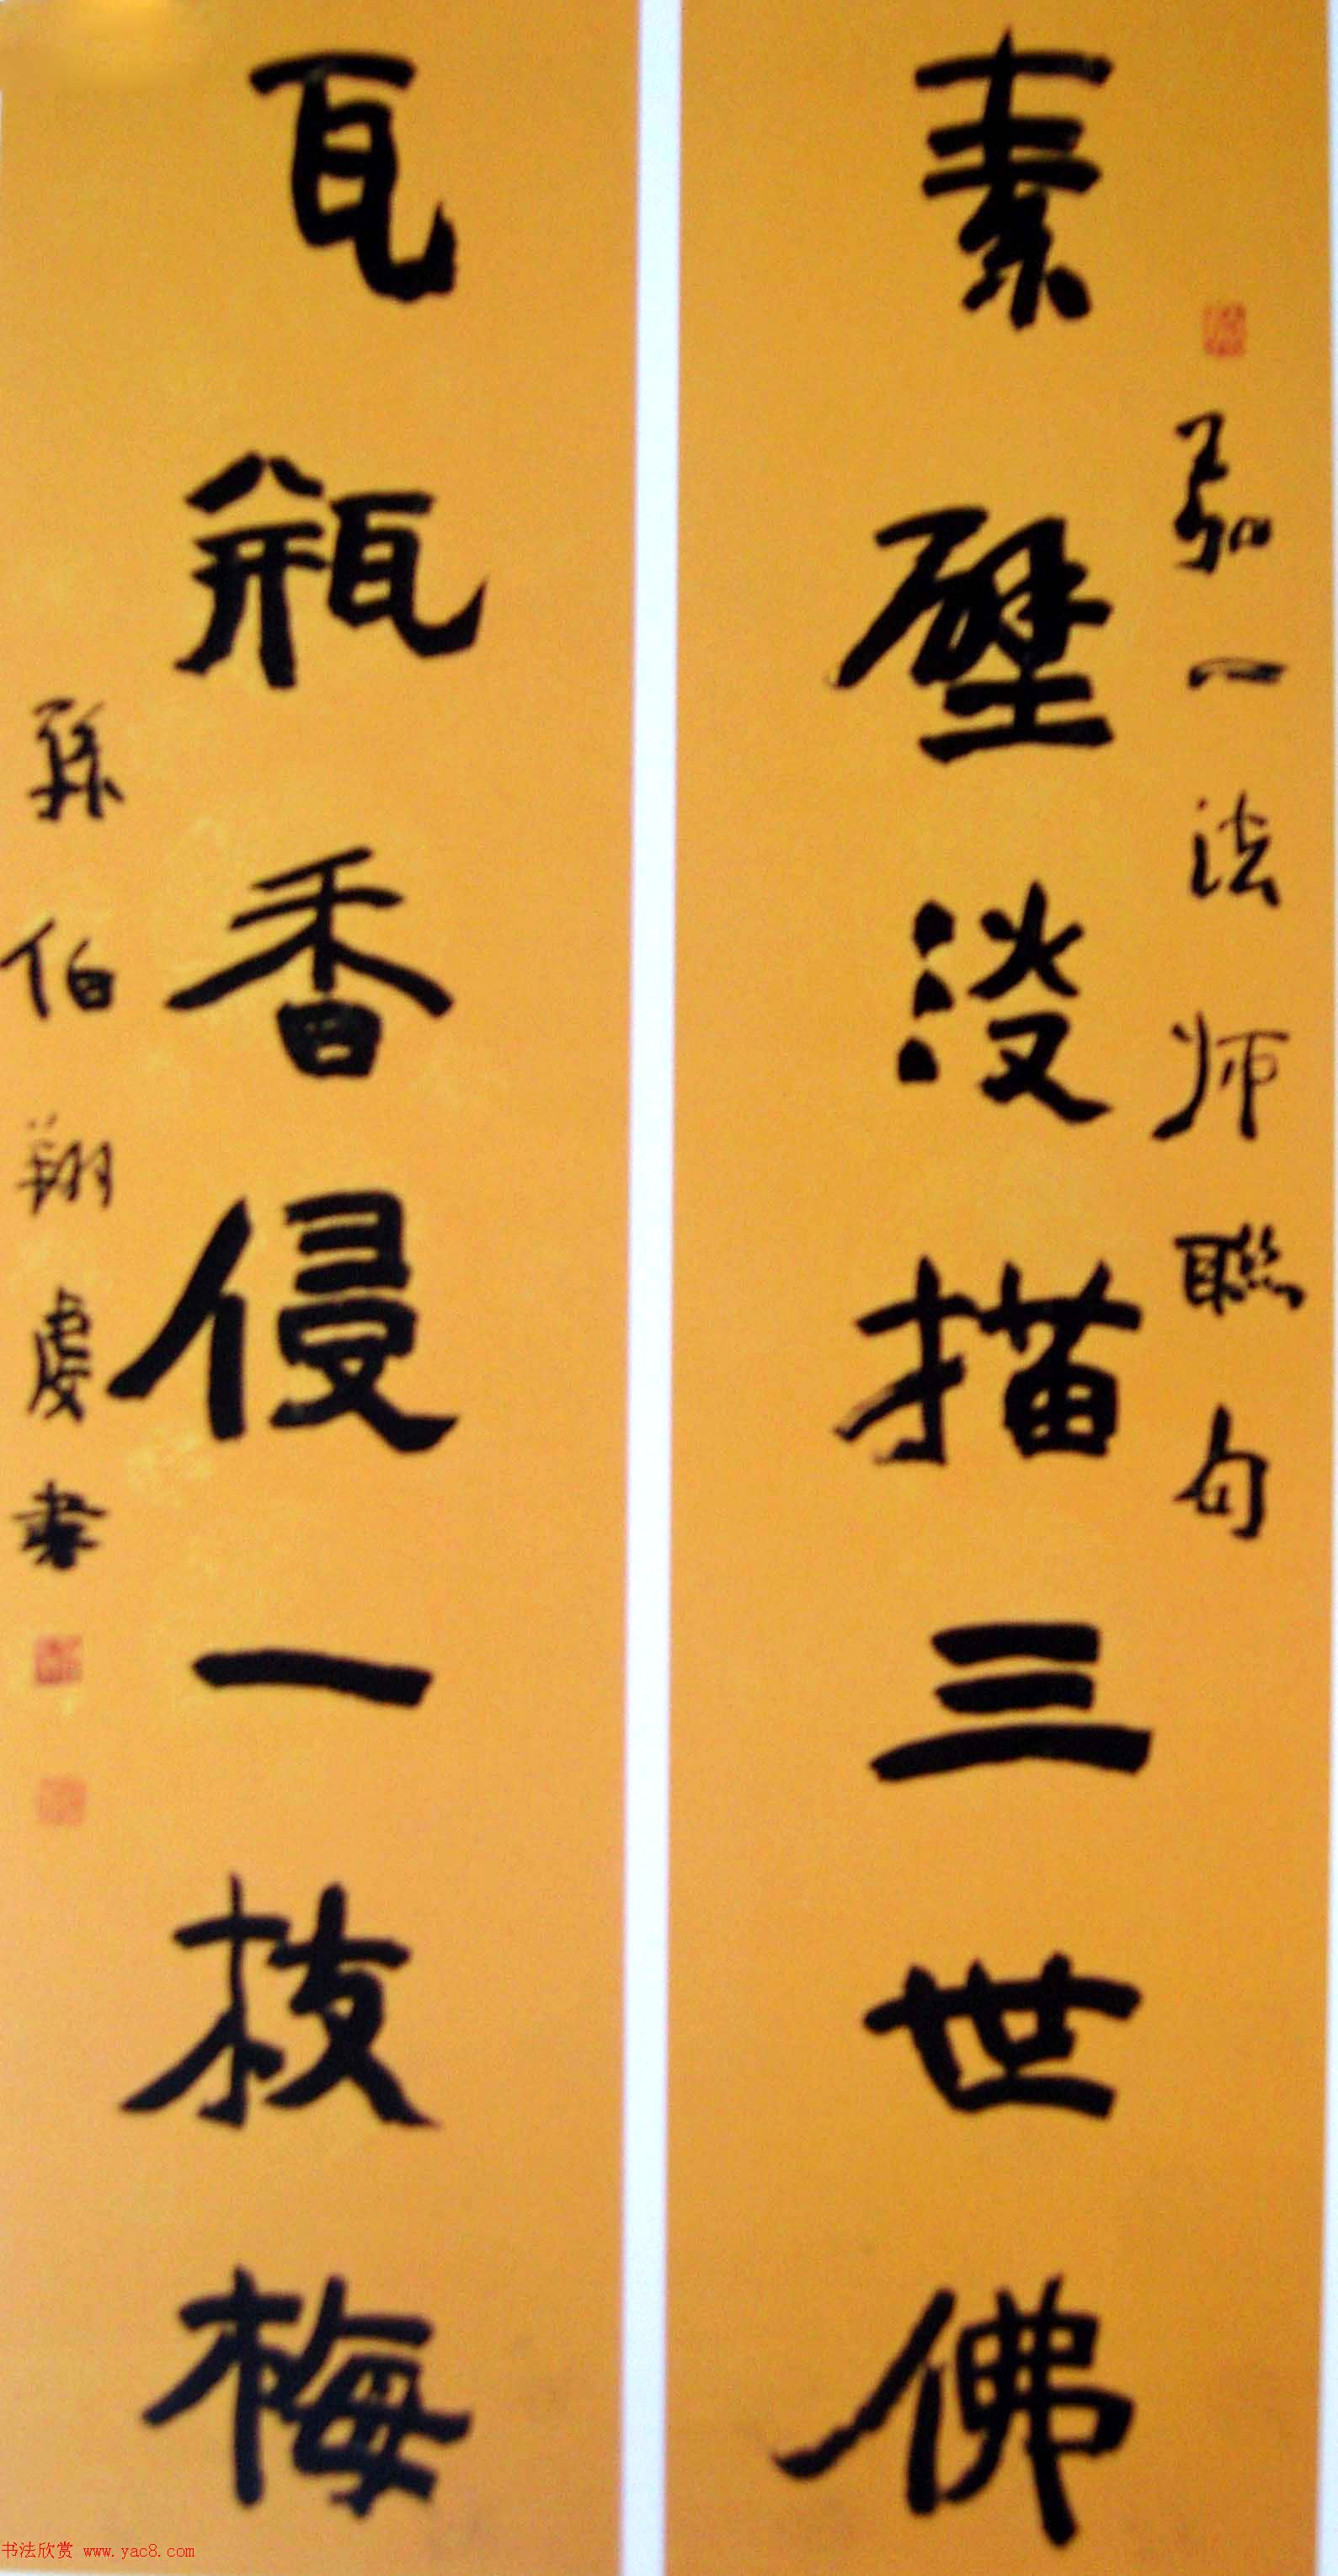 弘一法师聯句
素壁淡描三世佛
瓦瓶香侵一枝梅
孫伯翔虔書
书法欣赏 www.yac8.com